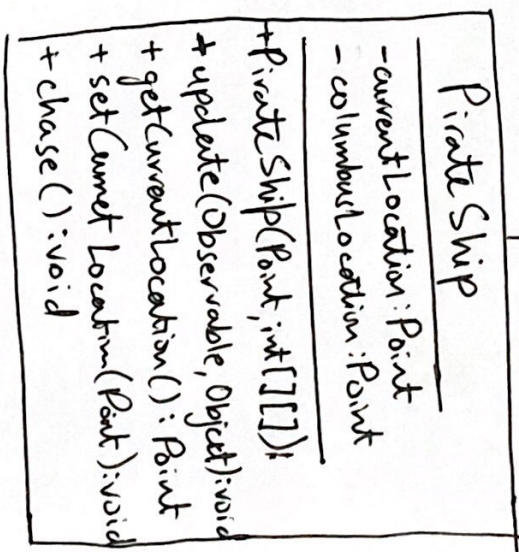 Pirate Ship
- currentLocation : Point
- columbusLocation : Point
+ PirateShip(Point, int[][]):
+ update(Observable, Object):void
+ getCurrentLocation() : Point
+ setCurrnetLocation(Point) : void
+ chase() : void